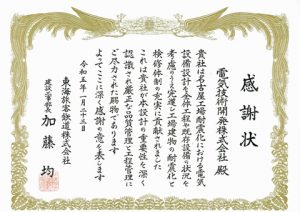 感謝状
電気技術開発株式会社 殿
貴社は名古屋工場耐震化における電気
設備設計を工程や既存設備の状況を
考慮のうえ完遂し工場建物の耐震化と
検修体制の充実に貢献されました
これは貴社が本設計の重要性を深く
認識され厳正な品質管理と工程管理に
ご尽力された賜物であります
よってここに深く感謝の意を表します
令和五年一月二十三日
東海旅客鉄道株式会社
建設工事部長 加藤 均